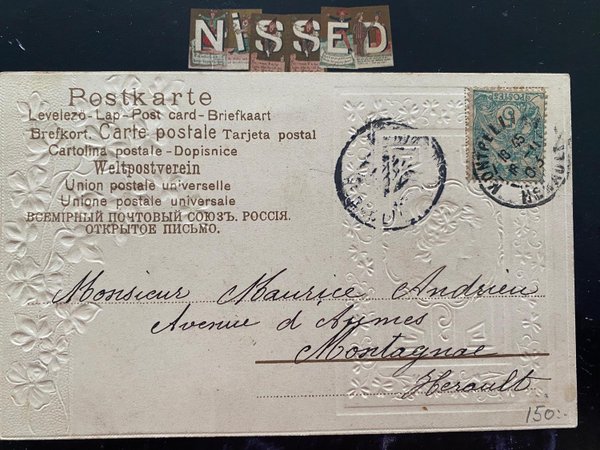 NISSED
Postkarte
Levelező-Lap-Post card-Briefkaart
Brefkort. Carte postale Tarjeta postal
Cartolina postale-Dopisnice
Weltpostverein
Union postale universelle
Unione postale universale
ВСЕМІРНЫЙ ПОЧТОВЫЙ СОЮЗЪ. РОССІЯ.
ОТКРЫТОЕ ПИСЬМО.
Monsieur Maurice Andrieu
Avenue d'Aumes
Montagnac
Herault
150:-